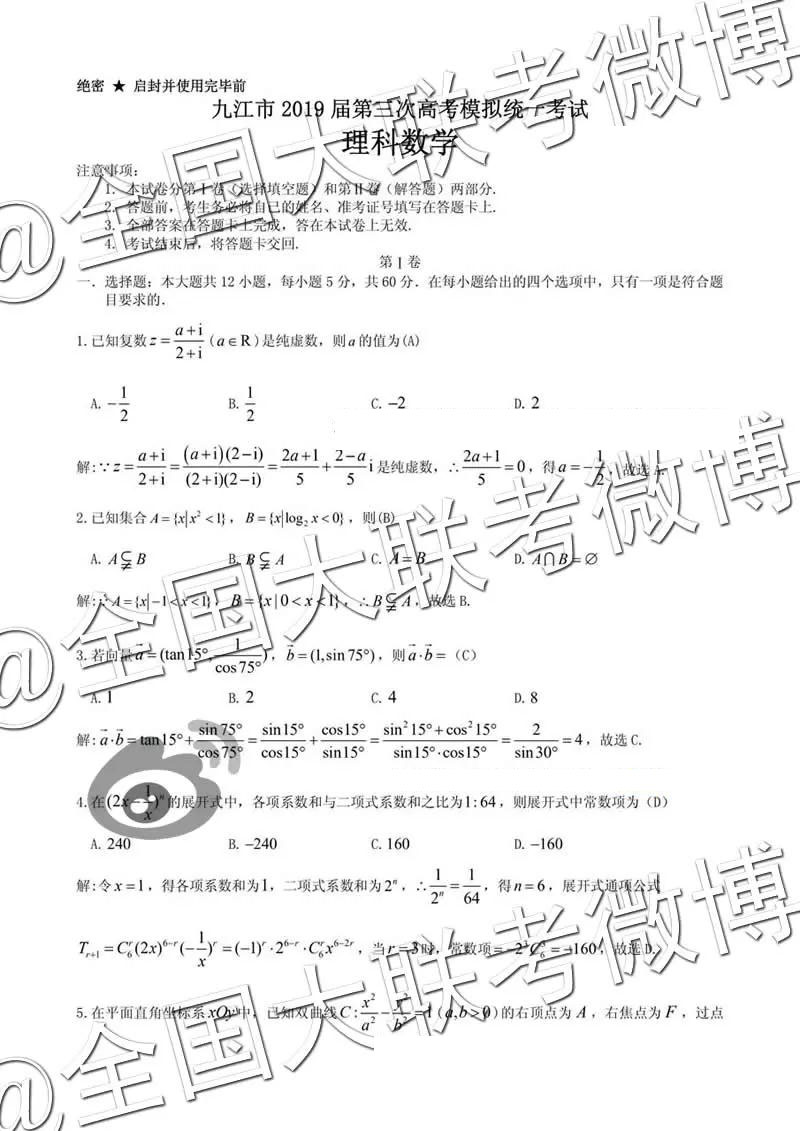 绝密 ★ 启封并使用完毕前
九江市 2019 届第三次高考模拟统一考试
理科数学
注意事项:
1. 本试卷分第Ⅰ卷(选择填空题)和第Ⅱ卷(解答题)两部分.
2. 答题前,考生务必将自己的姓名、准考证号填写在答题卡上.
3. 全部答案在答题卡上完成,答在本试卷上无效.
4. 考试结束后,将答题卡交回.
第Ⅰ卷
一. 选择题: 本大题共 12 小题, 每小题 5 分, 共 60 分. 在每小题给出的四个选项中, 只有一项是符合题
目要求的.
1.已知复数 z = (a+i)/(2+i) (a∈R)是纯虚数,则a的值为(A)
A. −1/2 B. 1/2 C. −2 D. 2
解:∵z = (a+i)/(2+i) = (a+i)(2−i)/(2+i)(2−i) = (2a+1)/5 + (2−a)/5 i 是纯虚数,∴(2a+1)/5 = 0,得a = −1/2,故选 A.
2.已知集合 A={x|x²<1}, B={x|log₂x<0},则(B)
A. A⫋B B. B⫋A C. A=B D. A∩B=∅
解:∵A={x|−1<x<1}, B={x|0<x<1},∴B⫋A,故选 B.
3.若向量 a⃗=(tan15°, 1/cos75°), b⃗=(1,sin75°),则 a⃗·b⃗=(C)
A. 1 B. 2 C. 4 D. 8
解: a⃗·b⃗ = tan15° + sin75°/cos75° = sin15°/cos15° + cos15°/sin15° = (sin²15°+cos²15°)/(sin15°·cos15°) = 2/sin30° = 4,故选 C.
4.在(2x−1/x)ⁿ的展开式中,各项系数和与二项式系数和之比为1:64,则展开式中常数项为(D)
A. 240 B. −240 C. 160 D. −160
解:令x=1,得各项系数和为1,二项式系数和为2ⁿ,∴1/2ⁿ = 1/64,得n=6,展开式通项公式
T_{r+1} = C₆^r(2x)^{6−r}(−1/x)^r = (−1)^r·2^{6−r}·C₆^r x^{6−2r},当r=3时,常数项=−2³C₆³=−160,故选 D.
5.在平面直角坐标系xOy中,已知双曲线C: x²/a² − y²/b² = 1(a,b>0)的右顶点为A,右焦点为F,过点
@全国大联考微博
@全国大联考微博
@全国大联考微博